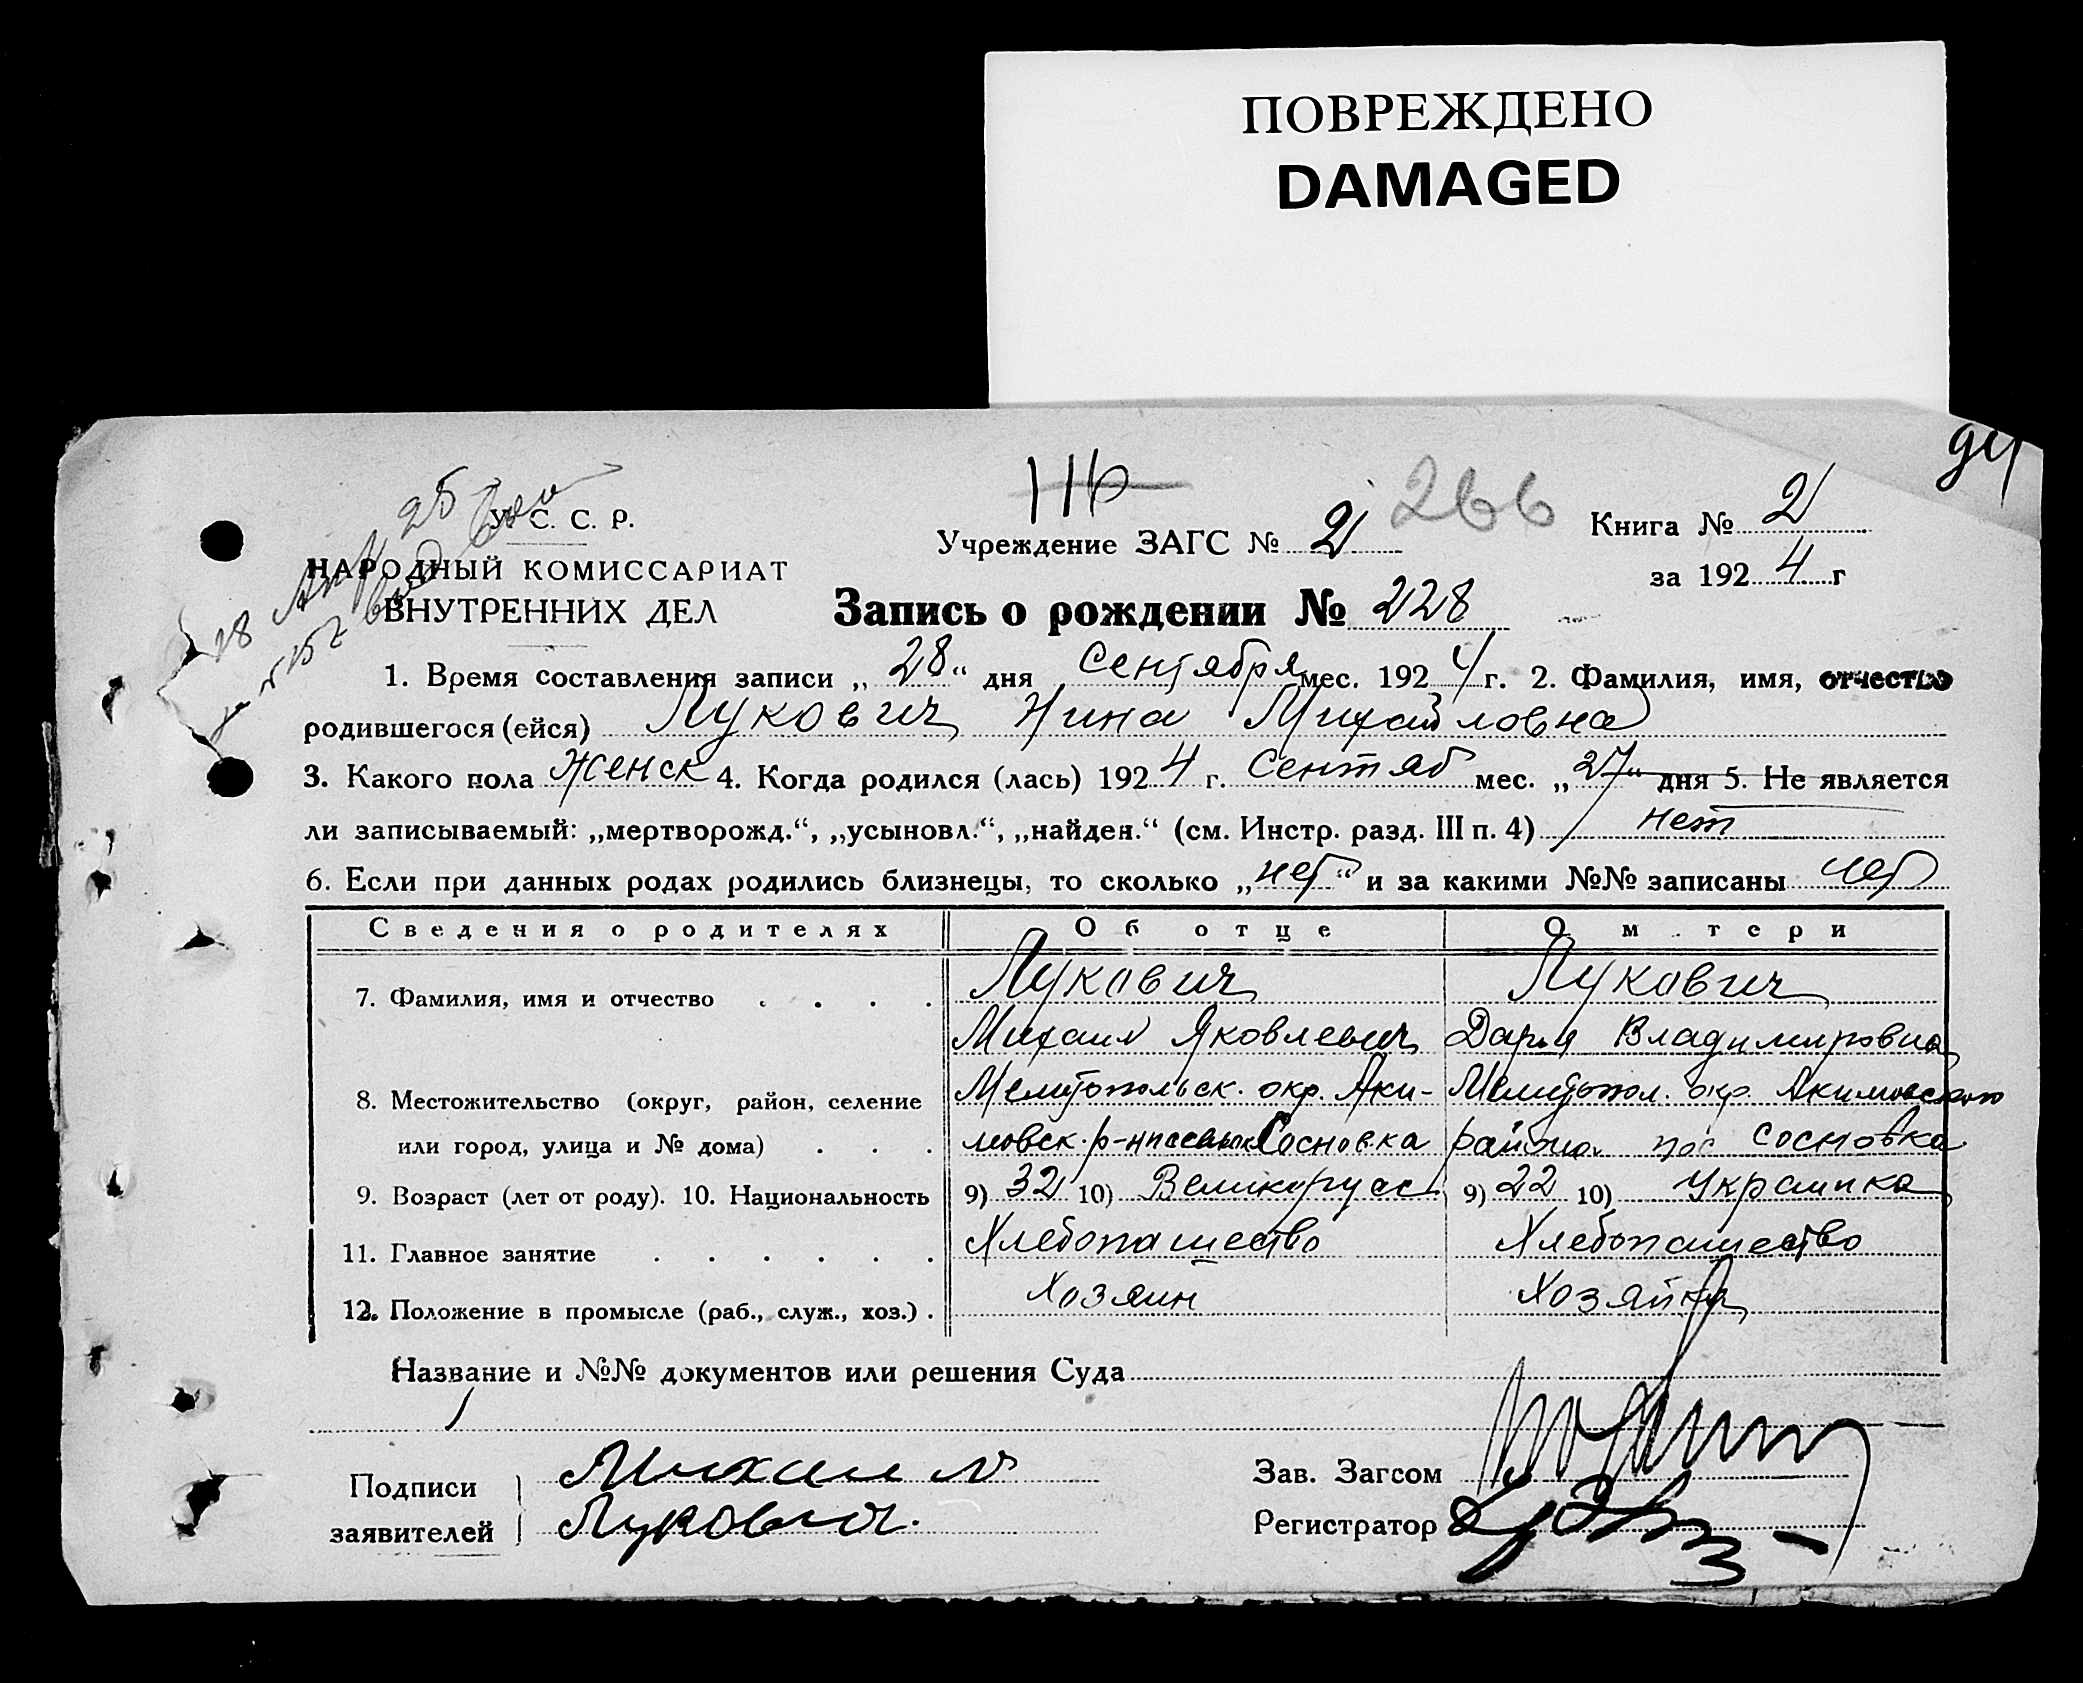 ПОВРЕЖДЕНО
DAMAGED
94
116
266
У. С. С. Р.
НАРОДНЫЙ КОМИССАРИАТ
ВНУТРЕННИХ ДЕЛ
Учреждение ЗАГС № 2
Книга № 2
за 1924 г
Запись о рождении № 228
1. Время составления записи „28“ дня Сентября мес. 1924 г. 2. Фамилия, имя, отчество
родившегося (ейся) Лукович Нина Михайловна
3. Какого пола женск 4. Когда родился (лась) 1924 г. Сентяб мес. „27“ дня 5. Не является
ли записываемый: „мертворожд.“, „усыновл.“, „найден.“ (см. Инстр. разд. III п. 4) нет
6. Если при данных родах родились близнецы, то сколько „нет“ и за какими №№ записаны нет
Сведения о родителях Об отце О м тери
7. Фамилия, имя и отчество . . . . Лукович Лукович
Михаил Яковлевич Дарья Владимировна
8. Местожительство (округ, район, селение Мелитопольск. окр. Аки- Мелитопол. окр. Акимовского
или город, улица и № дома) . . . мовск. р-н Сосновка района пос Сосновка
9. Возраст (лет от роду). 10. Национальность 9) 32 10) Великорусс 9) 22 10) Украинка
11. Главное занятие . . . . . . Хлебопашество Хлебопашество
12. Положение в промысле (раб., служ., хоз.) . Хозяин Хозяйка
Название и №№ документов или решения Суда
Подписи заявителей
Михаил
Лукович.
Зав. Загсом
Регистратор